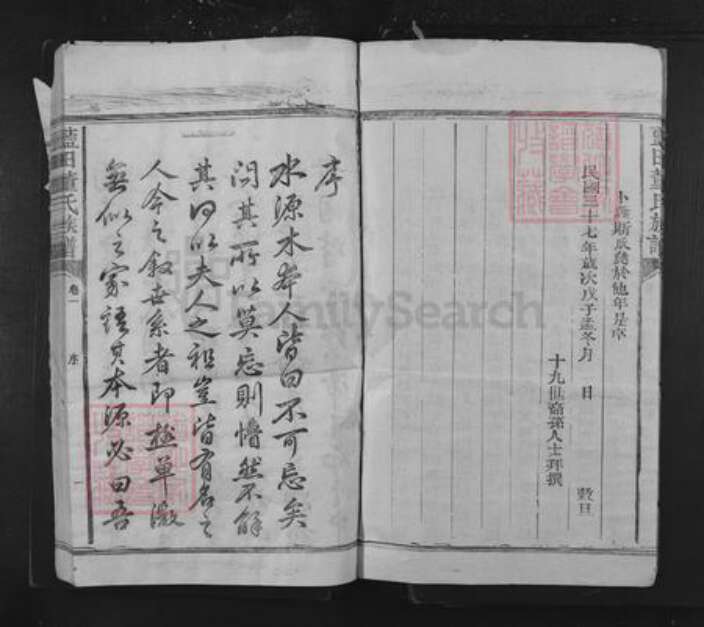 民國三十七年歲次戊子孟冬月 日 穀旦
十九世裔孫人士拜撰
藍田董氏族譜
序
水源木本人皆曰不可忘矣
問其所以莫忘則懵然不解
其何以夫人之祖豈皆有名之
人今之敘世系者即極單微
無似之家語其本源必曰吾
藍田董氏族譜 卷一 序 一
FamilySearch